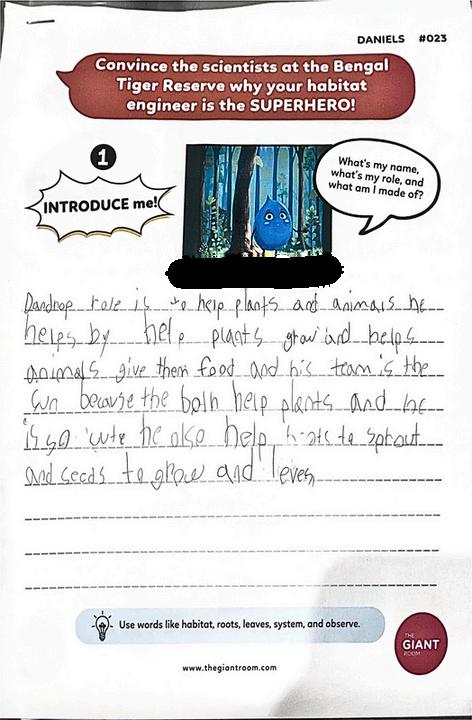 DANIELS #023
Convince the scientists at the Bengal
Tiger Reserve why your habitat
engineer is the SUPERHERO!
1
INTRODUCE me!
What's my name,
what's my role, and
what am I made of?
role is to help plants and animals he
helps by help plants grow and helps
animals give them food and his team is the
sun because the both help plants and he
is so cute he also help to sprout
and seeds to grow and leves
Use words like habitat, roots, leaves, system, and observe.
THE
GIANT
ROOM
www.thegiantroom.com